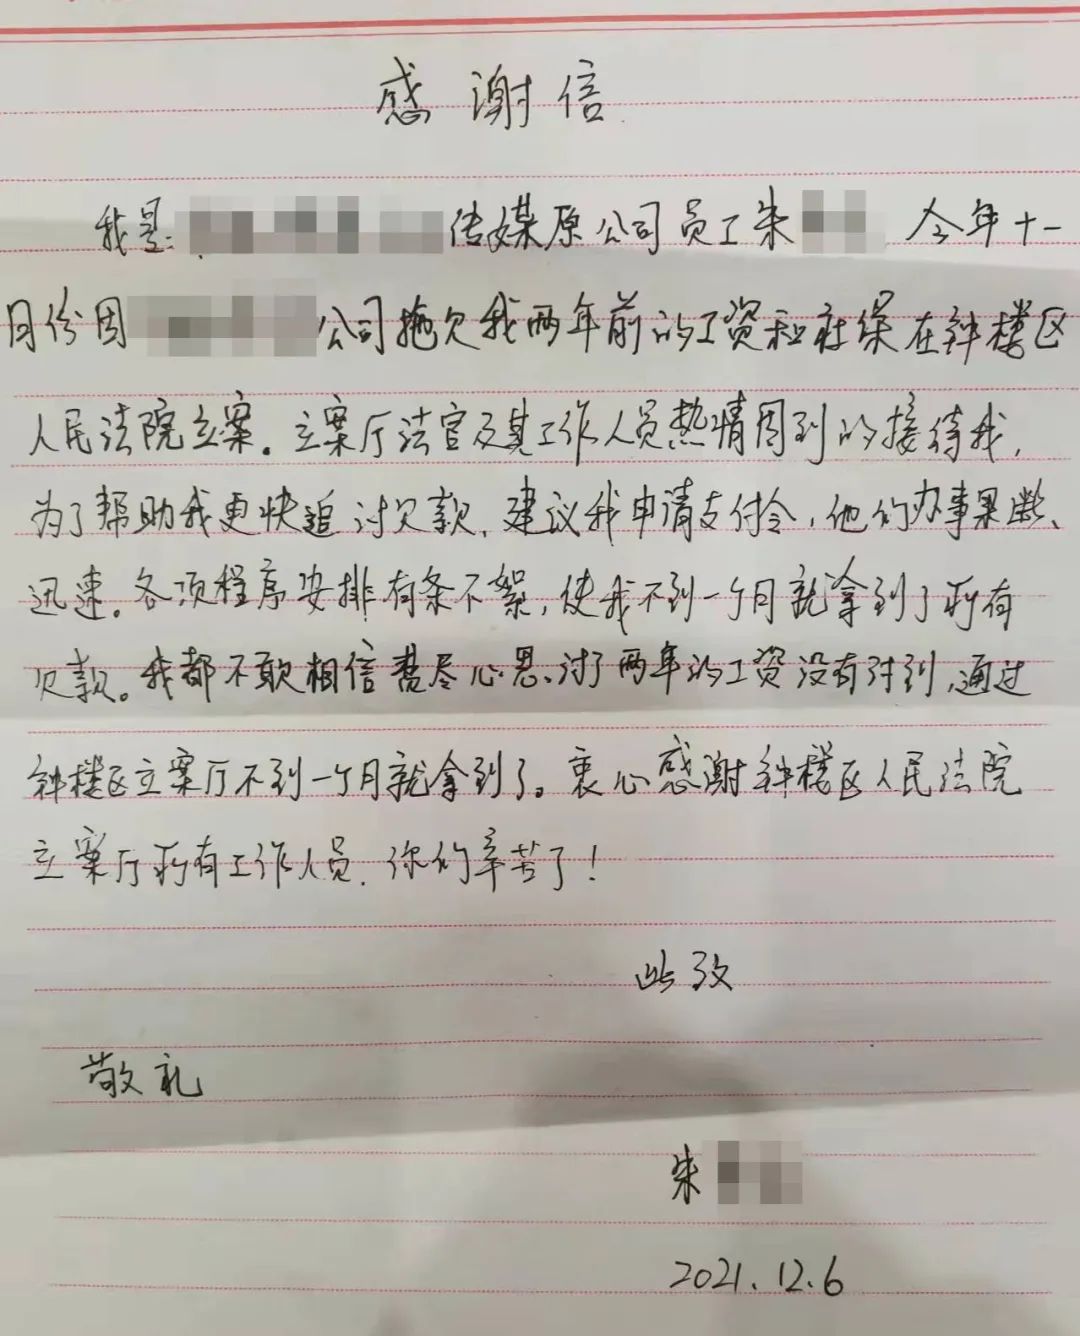 感谢信
我是:传媒原公司员工朱 今年十一
月份因公司拖欠我两年前的工资和社保在钟楼区
人民法院立案。立案厅法官及其工作人员热情周到的接待我,
为了帮助我更快追讨欠款,建议我申请支付令,他们办事果断、
迅速。各项程序安排有条不絮,使我不到一个月就拿到了所有
欠款。我都不敢相信费尽心思、讨了两年的工资没有讨到,通过
钟楼区立案厅不到一个月就拿到了。衷心感谢钟楼区人民法院
立案厅所有工作人员,你们辛苦了!
此致
敬礼
朱
2021.12.6